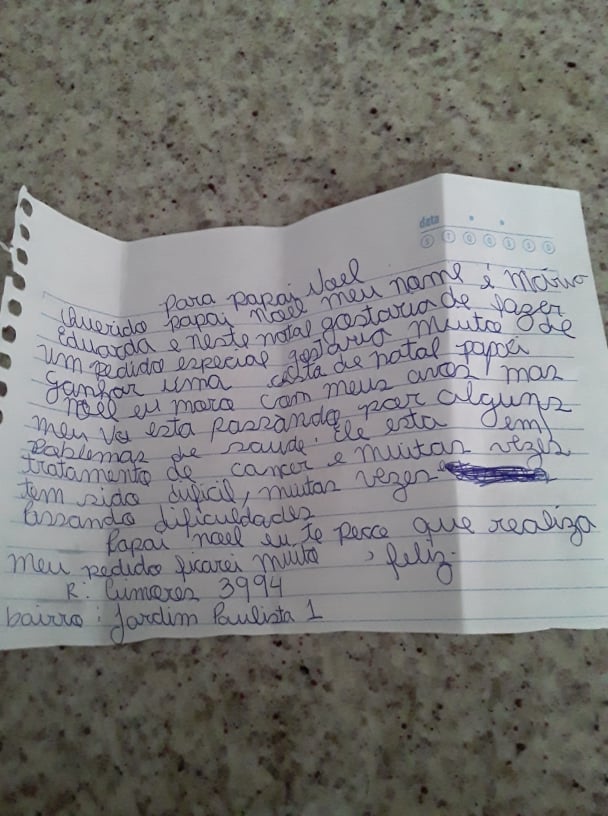 data
S T Q Q S S D
Para papai Noel
Querido papai Noel meu nome é Maria
Eduarda e neste natal gostaria de fazer
um pedido especial gostaria muito de
ganhar uma cesta de natal papai
Noel eu moro com meus avos mas
meu vo esta passando por alguns
problemas de saude. Ele esta em
tratamento de cancer e muitas vezes
tem sido dificil, muitas vezes
passando dificuldades
Papai noel eu te peço que realiza
meu pedido ficarei muito, feliz.
R: 3994
bairro: Jardim Paulista 1